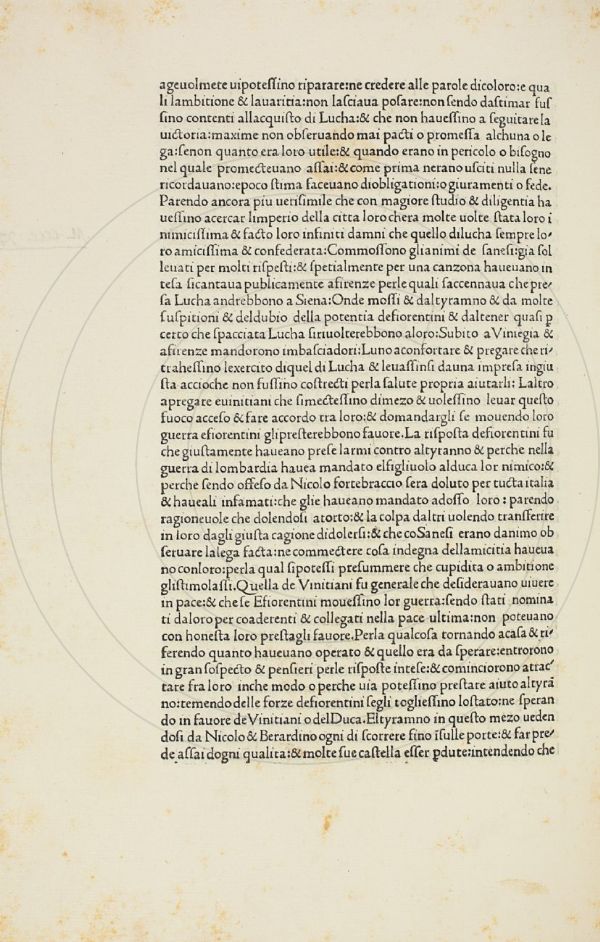 ageuolmẽte uipoteſſino riparare:ne credere alle parole dicoloro:e qua
li lambitione & lauaritia:non laſciaua poſare:non ſendo daſtimar fuſ
ſino contenti allacquiſto di Lucha:& che non haueſſino a ſeguitare la
uictoria:maxime non obſeruando mai pacti o promeſſa alchuna o le
ga:ſenon quanto era loro utile:& quando erano in pericolo o biſogno
nel quale promecteuano aſſai:& come prima nerano uſciti nulla ſene
ricordauano:epoco ſtima faceuano diobligationi:o giuramenti o fede.
Parendo ancora piu ueriſimile che con magiore ſtudio & diligentia ha
ueſſino acercar limperio della citta loro chera molte uolte ſtata loro i
nimiciſſima & facto loro infiniti damni che quello dilucha ſempre lo-
ro amiciſſima & confederata:Commoſſono glianimi de ſaneſi:gia ſol
leuati per molti riſpeſti:& ſpetialmente per una canzona haueuano in
teſa ſicantaua publicamente afirenze perle quali ſaccennaua che pre-
ſa Lucha andrebbono a Siena:Onde moſſi & daltyramno & da molte
ſuſpitioni & deldubio della potentia defiorentini & daltener quaſi p
certo che ſpacciata Lucha ſiriuolterebbono aloro:Subito a Vinegia &
afirenze mandorono imbaſciadori:Luno aconfortare & pregare che ri-
traheſſino lexercito diquel di Lucha & leuaſſinſi dauna impreſa ingiu
ſta accioche non fuſſino coſtrecti perla ſalute propria aiutarli: Laltro
apregare euinitiani che ſimecteſſino dimezo & uoleſſino leuar queſto
fuoco acceſo & fare accordo tra loro:& domandargli ſe mouendo loro
guerra efiorentini glipreſterebbono fauore.La riſpoſta defiorentini fu
che giuſtamente haueano preſe larmi contro altyranno & perche nella
guerra di lombardia hauea mandato elfigliuolo alduca lor nimico:&
perche ſendo offeſo da Nicolo fortebraccio ſera doluto per tucta italia
& haueali infamati:che glie haueano mandato adoſſo loro: parendo
ragioneuole che dolendoſi atorto:& la colpa daltri uolendo tranſferire
in loro dagli giuſta cagione didolerſi:& che co Saneſi erano danimo ob
ſeruare lalega facta:ne commectere coſa indegna dellamicitia haueua
no conloro:perla qual ſipoteſſi preſummere che cupidita o ambitione
gliſtimolaſſi.Quella de Vinitiani fu generale che deſiderauano uiuere
in pace:& che ſe Efiorentini moueſſino lor guerra:ſendo ſtati nomina
ti daloro per coaderenti & collegati nella pace ultima:non poteuano
con honeſta loro preſtagli fauore.Perla qualcoſa tornando acaſa & ri-
ferendo quanto haueuano operato & quello era da ſperare:entrorono
in gran ſoſpecto & penſieri perle riſpoſte inteſe:& cominciorono atrac-
tare fra loro inche modo o perche uia poteſſino preſtare aiuto altyrã
no:temendo delle forze defiorentini ſegli toglieſſino loſtato:ne ſperan
do in fauore de Vinitiani o del Duca.Eltyramno in queſto mezo ueden
doſi da Nicolo & Berardino ogni di ſcorrere fino iſulle porte:& far pre-
de aſſai dogni qualita:& molte ſue caſtella eſſer ꝑdute:intendendo che